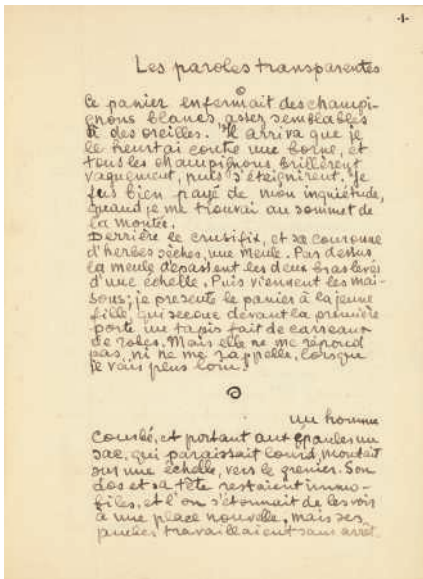 -1-
Les paroles transparentes
Ce panier enfermait des champi-
gnons blancs assez semblables
à des oreilles. Il arriva que je
le heurtai contre une borne, et
tous les champignons brillèrent
vaguement, puis s'éteignirent. Je
fus bien payé de mon inquiétude,
quand je me trouvai au sommet de
la montée.
Derrière le crusifix, et sa couronne
d'herbes sèches, une meule. Par dessus
la meule dépassent les deux bras levés
d'une échelle. Puis viennent les mai-
sons; je présente le panier à la jeune
fille, qui secoue devant la première
porte un tapis fait de carreaux
de robes. Mais elle ne me répond
pas, ni ne me rappelle, lorsque
je vais plus loin.
un homme
courbé, et portant aux épaules un
sac, qui paraissait lourd, montait
sur une échelle, vers le grenier. Son
dos et sa tête restaient immo-
biles, et l'on s'étonnait de les voir
à une place nouvelle, mais ses
jambes travaillaient sans arrêt.